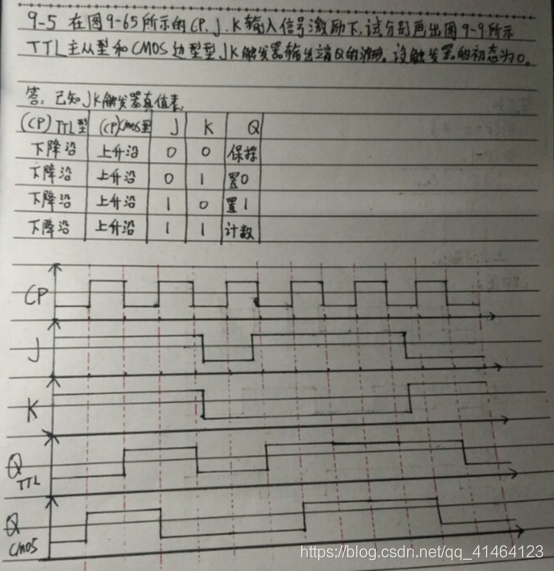 9-5 在图9-65所示的CP、J、K输入信号激励下,试分别画出图9-9所示
TTL主从型和CMOS边型型JK触发器输出端Q的波形。设触发器的初态为0。
答:已知JK触发器真值表
(CP)TTL型 (CP)CMOS型 J K Q
下降沿 上升沿 0 0 保持
下降沿 上升沿 0 1 置0
下降沿 上升沿 1 0 置1
下降沿 上升沿 1 1 计数
CP
J
K
Q TTL
Q CMOS
https://blog.csdn.net/qq_41464123